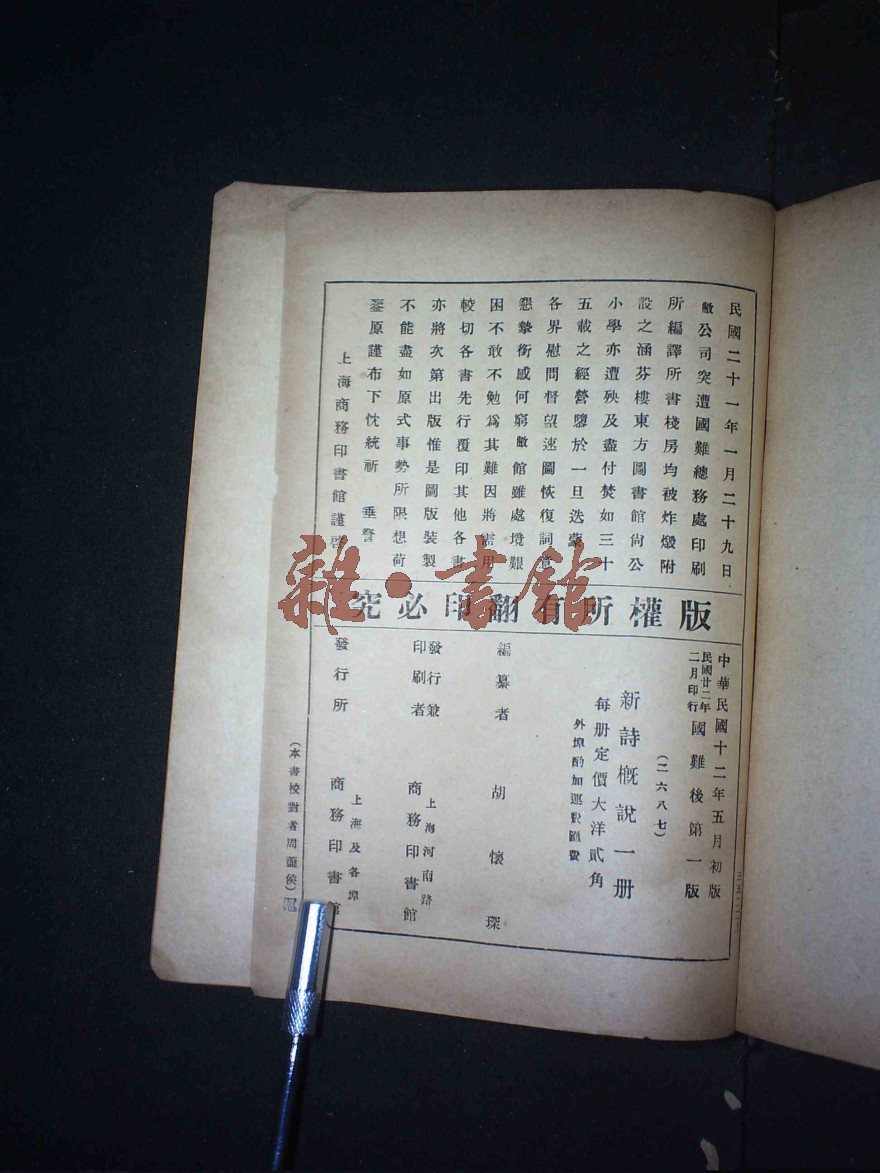 民國二十一年一月二十九日
敝公司突遭國難總務處印刷
所編譯所書棧房均被炸燬附
設之涵芬樓東方圖書館尙公
小學亦遭殃及盡付焚如三十
五載之經營隳於一旦迭蒙
各界慰問督望速圖恢復詞意
懇摯銜感何窮敝館雖處境艱
困不敢不勉爲其難因將需用
較切各書先行覆印其他各書
亦將次第出版惟是圖版裝製
不能盡如原式事勢所限想荷
鑒原謹布下忱統祈 垂詧
上海商務印書館謹啓
版權所有翻印必究
中華民國十二年五月初版
民國廿二年二月印行 國難後第一版
(二六八七)
新詩概說一册
每册定價大洋貳角
外埠酌加運費匯費
編纂者 胡懷琛
發行兼印刷者 上海河南路 商務印書館
發行所 上海及各埠 商務印書館
(本書校對者周蘊侯)
雜·書館